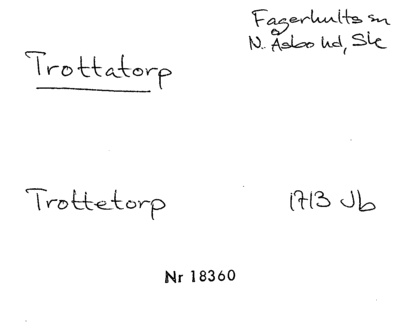 Fagerhults sn
N. Åsbo hd, Sk
Trottatorp
Trottetorp 1713 Jb
Nr 18360